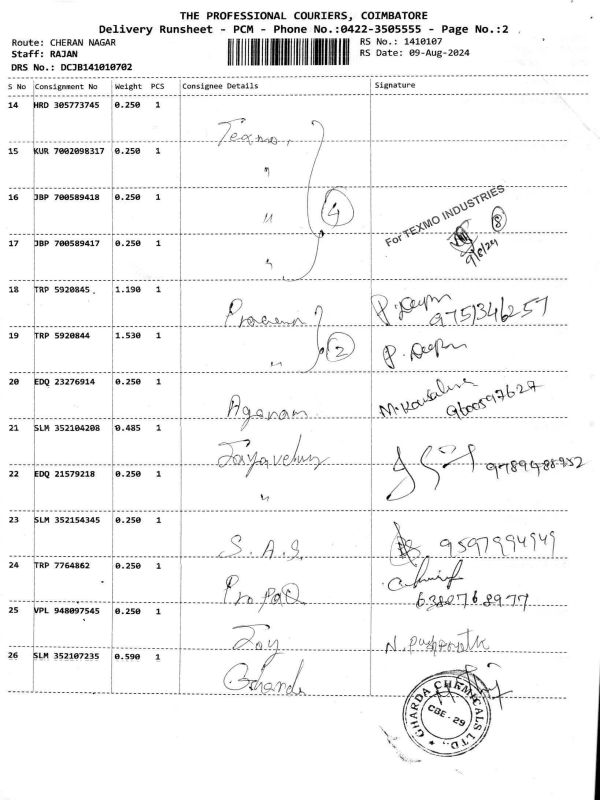 THE PROFESSIONAL COURIERS, COIMBATORE
Delivery Runsheet - PCM - Phone No.:0422-3505555 - Page No.:2
Route: CHERAN NAGAR
RS No.: 1410107
Staff: RAJAN
RS Date: 09-Aug-2024
DRS No.: DCJB141010702
S No Consignment No Weight PCS Consignee Details Signature
14 HRD 305773745 0.250 1
Texmo
15 KUR 7002098317 0.250 1
"
16 JBP 700589418 0.250 1
" 4
For TEXMO INDUSTRIES
8
9/8/24
17 JBP 700589417 0.250 1
"
18 TRP 5920845 1.190 1
P. Deepa
9751346257
19 TRP 5920844 1.530 1
" 2 P. Deepa
20 EDQ 23276914 0.250 1
Aganam M. Kousalya
9600597627
21 SLM 352104208 0.485 1
Jayavelu
22 EDQ 21579218 0.250 1
"
23 SLM 352154345 0.250 1
S. A. S. 9597994949
24 TRP 7764862 0.250 1
Propad
6380768977
25 VPL 948097545 0.250 1
Jay N.
26 SLM 352107235 0.590 1
GHARDA CHEMICALS LTD.,
CBE - 29